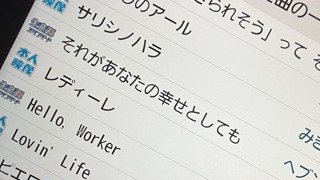 られそう」って そ
のアール
映像
サリシノハラ
それがあなたの幸せとしても
本人
映像
レディーレ
Hello, Worker
Lovin' Life
ピエロ
みき
ヘブン